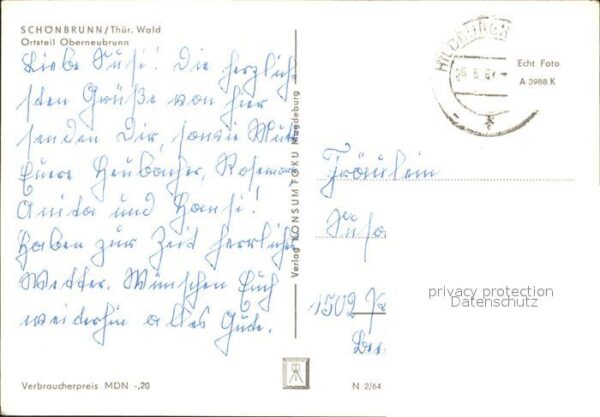 SCHÖNBRUNN/Thür. Wald
Ortsteil Oberneubrunn
Liebe Susi! Die herzlich
sten Grüße von hier
senden Dir, sowie Mutti
Euere Heubacher, Rosemarie
Anita und Hansi!
Haben zur Zeit herrliches
Wetter. Wünschen Euch
weiterhin alles Gute.
Verbraucherpreis MDN -,20
Verlag KONSUM FOKU Magdeburg
N 2/64
HILDBURGH
Echt Foto
A 3988 K
Fräulein
1502
privacy protection
Datenschutz